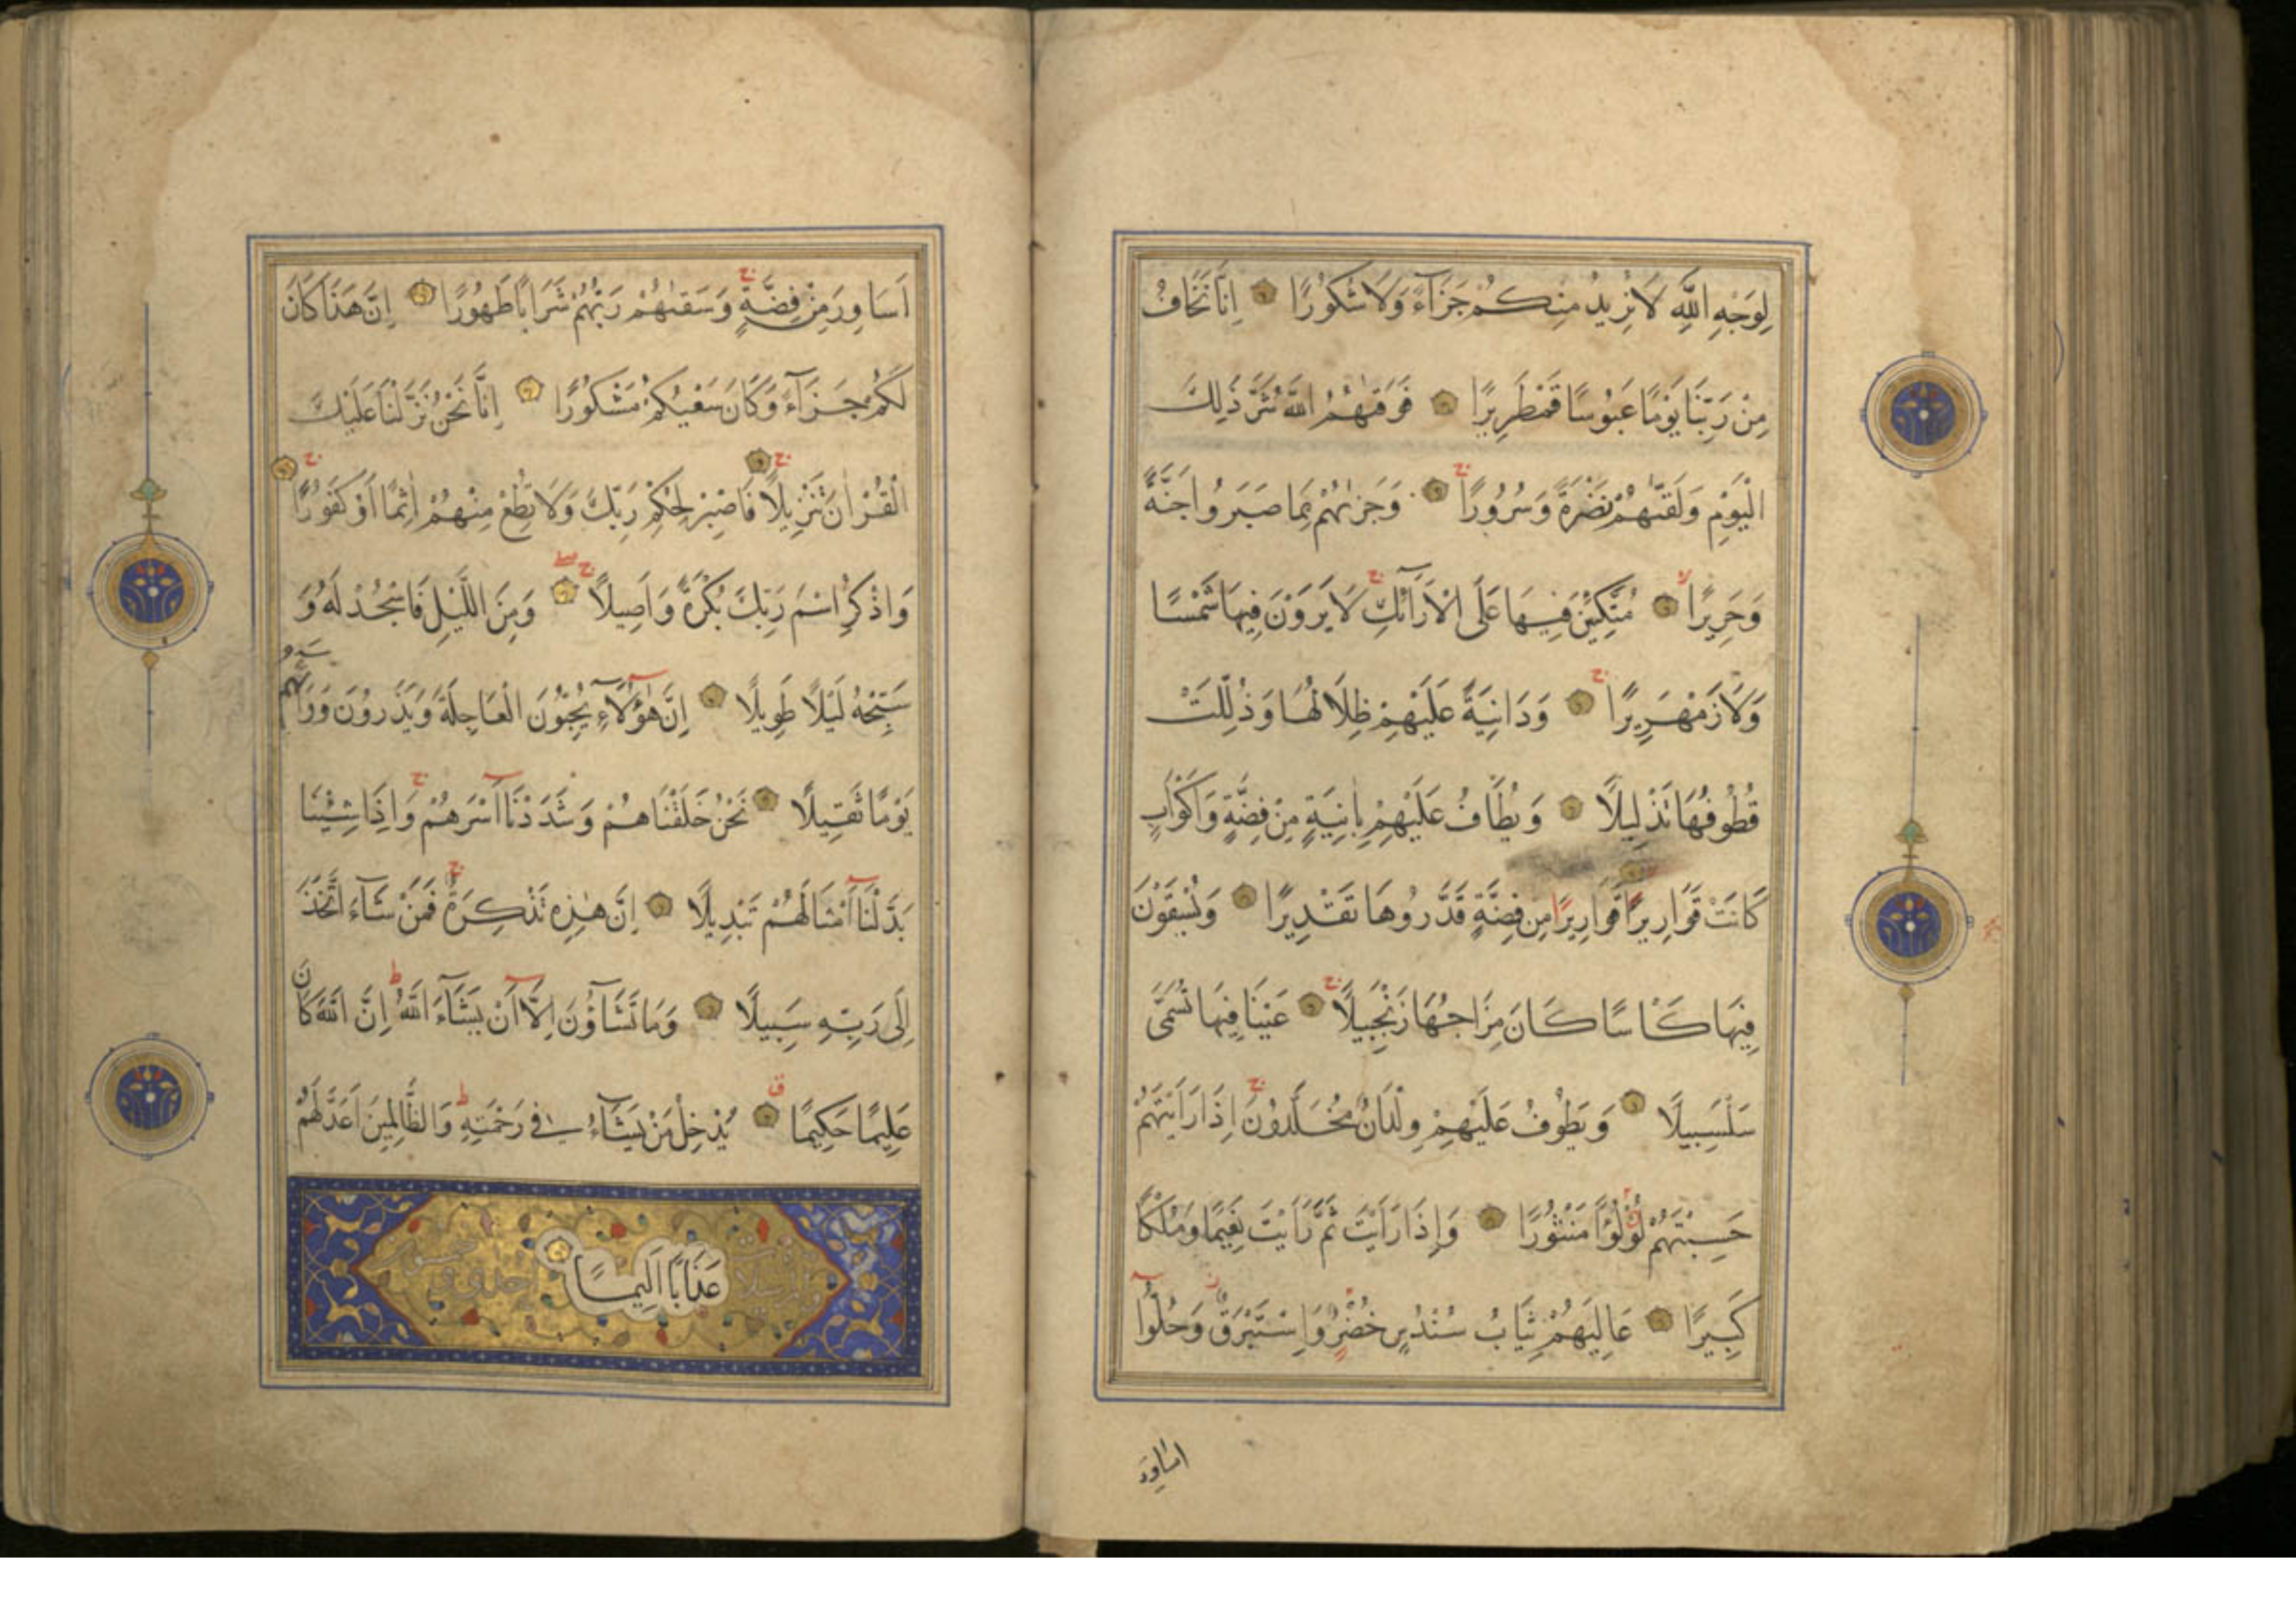 لِوَجْهِ اللَّهِ لَا نُرِيدُ مِنْكُمْ جَزَآءً وَلَا شُكُورًا اِنَّا نَخَافُ
مِنْ رَبِّنَا يَوْمًا عَبُوسًا قَمْطَرِيرًا فَوَقٰىهُمُ اللَّهُ شَرَّ ذٰلِكَ
الْيَوْمِ وَلَقّٰىهُمْ نَضْرَةً وَسُرُورًا وَجَزٰىهُمْ بِمَا صَبَرُوا جَنَّةً
وَحَرِيرًا مُتَّكِئِينَ فِيهَا عَلَى الْاَرَآئِكِ لَا يَرَوْنَ فِيهَا شَمْسًا
وَلَا زَمْهَرِيرًا وَدَانِيَةً عَلَيْهِمْ ظِلَالُهَا وَذُلِّلَتْ
قُطُوفُهَا تَذْلِيلًا وَيُطَافُ عَلَيْهِمْ بِاٰنِيَةٍ مِنْ فِضَّةٍ وَاَكْوَابٍ
كَانَتْ قَوَارِيرًا قَوَارِيرًا مِنْ فِضَّةٍ قَدَّرُوهَا تَقْدِيرًا وَيُسْقَوْنَ
فِيهَا كَاْسًا كَانَ مِزَاجُهَا زَنْجَبِيلًا عَيْنًا فِيهَا تُسَمّٰى
سَلْسَبِيلًا وَيَطُوفُ عَلَيْهِمْ وِلْدَانٌ مُخَلَّدُونَ اِذَا رَاَيْتَهُمْ
حَسِبْتَهُمْ لُؤْلُؤًا مَنْثُورًا وَاِذَا رَاَيْتَ ثَمَّ رَاَيْتَ نَعِيمًا وَمُلْكًا
كَبِيرًا عَالِيَهُمْ ثِيَابُ سُنْدُسٍ خُضْرٌ وَاِسْتَبْرَقٌ وَحُلُّوا
اساور
اَسَاوِرَ مِنْ فِضَّةٍ وَسَقٰىهُمْ رَبُّهُمْ شَرَابًا طَهُورًا اِنَّ هَذَا كَانَ
لَكُمْ جَزَآءً وَكَانَ سَعْيُكُمْ مَشْكُورًا اِنَّا نَحْنُ نَزَّلْنَا عَلَيْكَ
الْقُرْاٰنَ تَنْزِيلًا فَاصْبِرْ لِحُكْمِ رَبِّكَ وَلَا تُطِعْ مِنْهُمْ اٰثِمًا اَوْ كَفُورًا
وَاذْكُرِ اسْمَ رَبِّكَ بُكْرَةً وَاَصِيلًا وَمِنَ اللَّيْلِ فَاسْجُدْ لَهُ وَ
سَبِّحْهُ لَيْلًا طَوِيلًا اِنَّ هٰؤُلَآءِ يُحِبُّونَ الْعَاجِلَةَ وَيَذَرُونَ وَرَآءَهُمْ
يَوْمًا ثَقِيلًا نَحْنُ خَلَقْنَاهُمْ وَشَدَدْنَآ اَسْرَهُمْ وَاِذَا شِئْنَا
بَدَّلْنَآ اَمْثَالَهُمْ تَبْدِيلًا اِنَّ هٰذِهِ تَذْكِرَةٌ فَمَنْ شَآءَ اتَّخَذَ
اِلَى رَبِّهِ سَبِيلًا وَمَا تَشَآؤُنَ اِلَّآ اَنْ يَشَآءَ اللَّهُ اِنَّ اللَّهَ كَانَ
عَلِيمًا حَكِيمًا يُدْخِلُ مَنْ يَشَآءُ فِي رَحْمَتِهِ وَالظَّالِمِينَ اَعَدَّ لَهُمْ
عَذَابًا اَلِيمًا